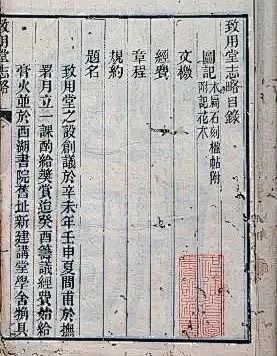 致用堂志略目錄
圖記 木扁石刻楹帖附 附記花木
文檄
經費
章程
規約
題名
致用堂之設創議於辛未年壬申夏間甫於撫
署月立一課酌給獎賞迨癸酉籌議經費始給
膏火並於西湖書院舊址新建講堂學舍購具
致用堂志略